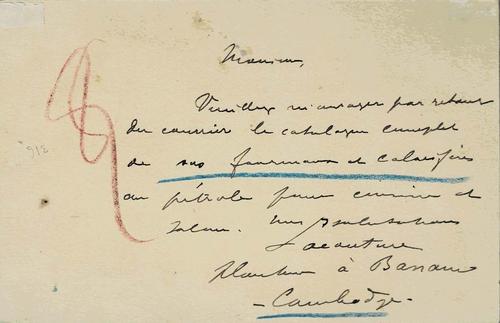 Monsieur,
Veuillez m'envoyer par retour
du courrier le catalogue complet
de vos fourneaux et calorifères
au pétrole pour cuisine et
salon. Mes salutations
Planteur à Banam
- Cambodge -
316